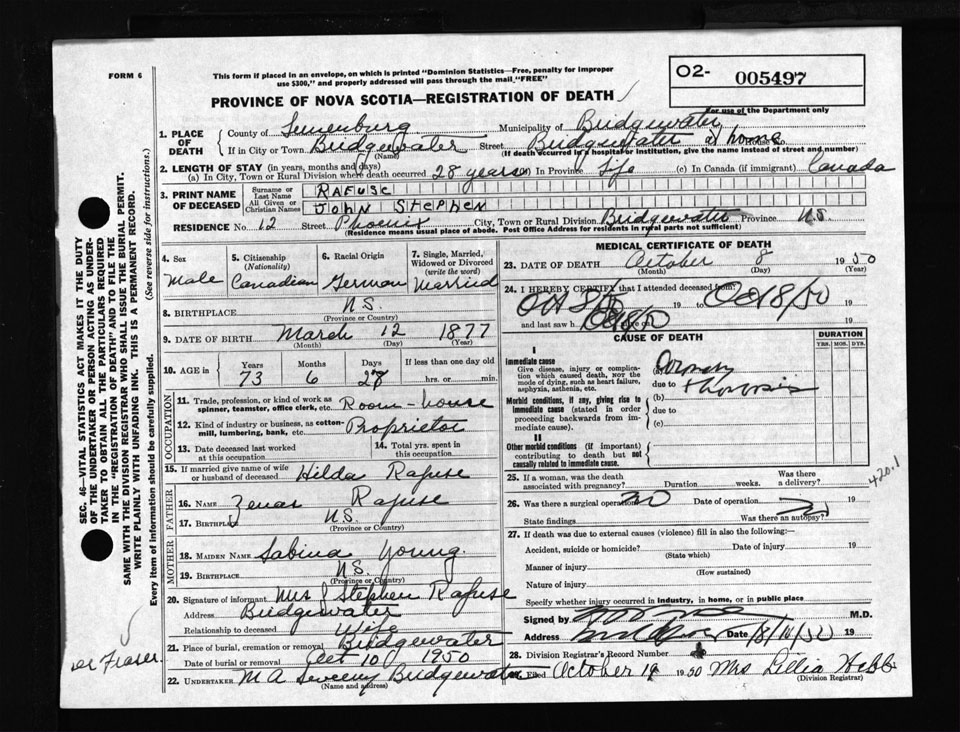 FORM 6
This form if placed in an envelope, on which is printed "Dominion Statistics—Free, penalty for improper
use $300," and properly addressed will pass through the mail "FREE"
O2- 005497
For use of the Department only
PROVINCE OF NOVA SCOTIA—REGISTRATION OF DEATH
1. PLACE OF DEATH
County of Lunenburg Municipality of Bridgewater
If in City or Town Bridgewater Street Bridgewater at home House No.
(Name) (If death occurred in a hospital or institution, give the name instead of street and number)
2. LENGTH OF STAY (in years, months and days)
(a) In City, Town or Rural Division where death occurred 28 years In Province Life (c) In Canada (if immigrant) Canada
3. PRINT NAME OF DECEASED
Surname or Last Name RAFUSE
All Given or Christian Names JOHN STEPHEN
RESIDENCE No. 12 Street Phoenix City, Town or Rural Division Bridgewater Province N.S.
(Residence means usual place of abode. Post Office Address for residents in rural parts not sufficient)
4. Sex
Male
5. Citizenship
(Nationality)
Canadian
6. Racial Origin
German
7. Single, Married, Widowed or Divorced
(write the word)
Married
8. BIRTHPLACE N.S.
(Province or Country)
9. DATE OF BIRTH March 12 1877
(Month) (Day) (Year)
10. AGE in Years Months Days If less than one day old
73 6 28 hrs. or min.
OCCUPATION
11. Trade, profession, or kind of work as
spinner, teamster, office clerk, etc. Room-house
12. Kind of industry or business, as cotton-
mill, lumbering, bank, etc. Proprietor
13. Date deceased last worked
at this occupation
14. Total yrs. spent in
this occupation
15. If married give name of wife
or husband of deceased Hilda Rafuse
FATHER
16. Name Zenas Rafuse
17. Birthplace N.S.
(Province or Country)
MOTHER
18. MAIDEN NAME Sabina Young
19. BIRTHPLACE N.S.
(Province or Country)
20. Signature of informant Mrs J Stephen Rafuse
Address Bridgewater
Relationship to deceased Wife
21. Place of burial, cremation or removal Bridgewater
Date of burial or removal Oct 10 1950
22. UNDERTAKER M A Sweeny Bridgewater
(Name and address)
MEDICAL CERTIFICATE OF DEATH
23. DATE OF DEATH October 8 1950
(Month) (Day) (Year)
24. I HEREBY CERTIFY that I attended deceased from:
Oct 8/50 19 to Oct 8/50 19
and last saw h alive on Oct 8/50 19
CAUSE OF DEATH
DURATION
YRS. MOS. DYS.
I
Immediate cause
Give disease, injury or complica-
tion which caused death, NOT the
mode of dying, such as heart failure,
asphyxia, asthenia, etc.
Coronary
due to thrombosis
Morbid conditions, if any, giving rise to
immediate cause (stated in order
proceeding backwards from im-
mediate cause).
(b)
due to
(c)
II
Other morbid conditions (if important)
contributing to death but not
causally related to immediate cause.
25. If a woman, was the death
associated with pregnancy? Duration weeks. Was there
a delivery?
420.1
26. Was there a surgical operation? no Date of operation 19
State findings Was there an autopsy? no
27. If death was due to external causes (violence) fill in also the following:—
Accident, suicide or homicide? Date of injury 19
(State which)
Manner of injury
(How sustained)
Nature of injury
Specify whether injury occurred in industry, in home, or in public place
Signed by M.D.
Address Date 8/10/50 19
28. Division Registrar's Record Number
Filed October 19 1950 Mrs Lillia Hebb
(Division Registrar)
SEC. 46—VITAL STATISTICS ACT MAKES IT THE DUTY
OF THE UNDERTAKER OR PERSON ACTING AS UNDER-
TAKER TO OBTAIN ALL THE PARTICULARS REQUIRED
IN THE "REGISTRATION OF DEATH" AND TO FILE THE
SAME WITH THE DIVISION REGISTRAR WHO SHALL ISSUE THE BURIAL PERMIT.
WRITE PLAINLY WITH UNFADING INK. THIS IS A PERMANENT RECORD.
Every item of information should be carefully supplied. (See reverse side for instructions.)
Fraser